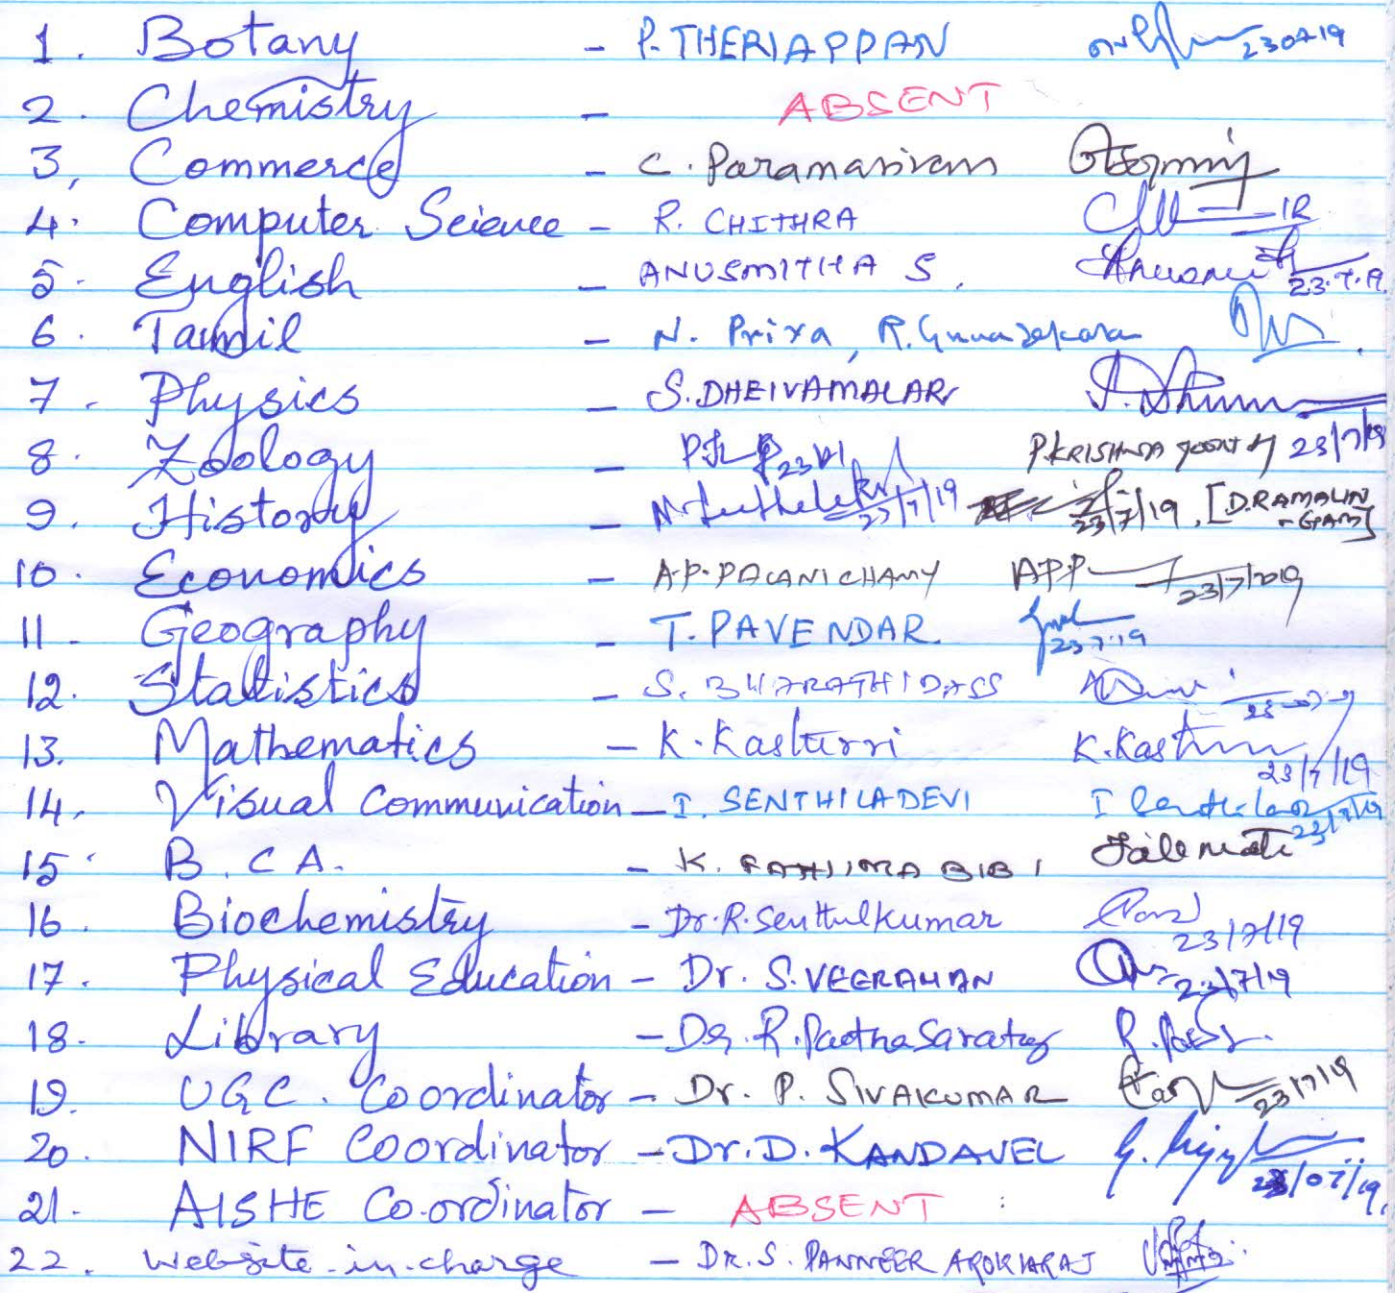 1. Botany - P. THERIAPPAN 230719
2. Chemistry - ABSENT
3, Commerce - C. Paramasivam
4. Computer Science - R. CHITHRA
5. English - ANUSMITHA S. 23.7.19.
6. Tamil - N. Priya, R. Gunasekara
7. Physics - S. DHEIVAMALAR
8. Zoology - P. KRISHNA 23/7/19
9. History - 23/7/19 23/7/19, [D.RAMALIN-GAM]
10. Economics - A.P. PALANICHAMY APP 23/7/2019
11. Geography - T. PAVENDAR. 23.7.19
12. Statistics - S. BHARATHIDASS
13. Mathematics - K. Kasturri K. Kasturi 23/7/19
14. Visual Communication - I. SENTHILADEVI 23/7/19
15. B. C A. - K. FATHIMA BIBI
16. Biochemistry - Dr. R. Senthulkumar 23/7/19
17. Physical Education - Dr. S. VEERAMAN 23/7/19
18. Library - Dr. R. Parthasarathy
19. UGC. Coordinator - Dr. P. SIVAKUMAR 23/7/19
20. NIRF Coordinator - Dr. D. KANDAVEL 23/07/19.
21. AISHE Co.ordinator - ABSENT
22. Website in-charge - DR. S. PANNEER AROKIARAJ